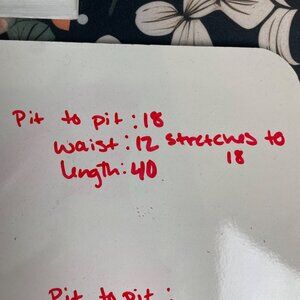 Pit to pit: 18
waist: 12 stretches to
18
length: 40
Pit to pit: